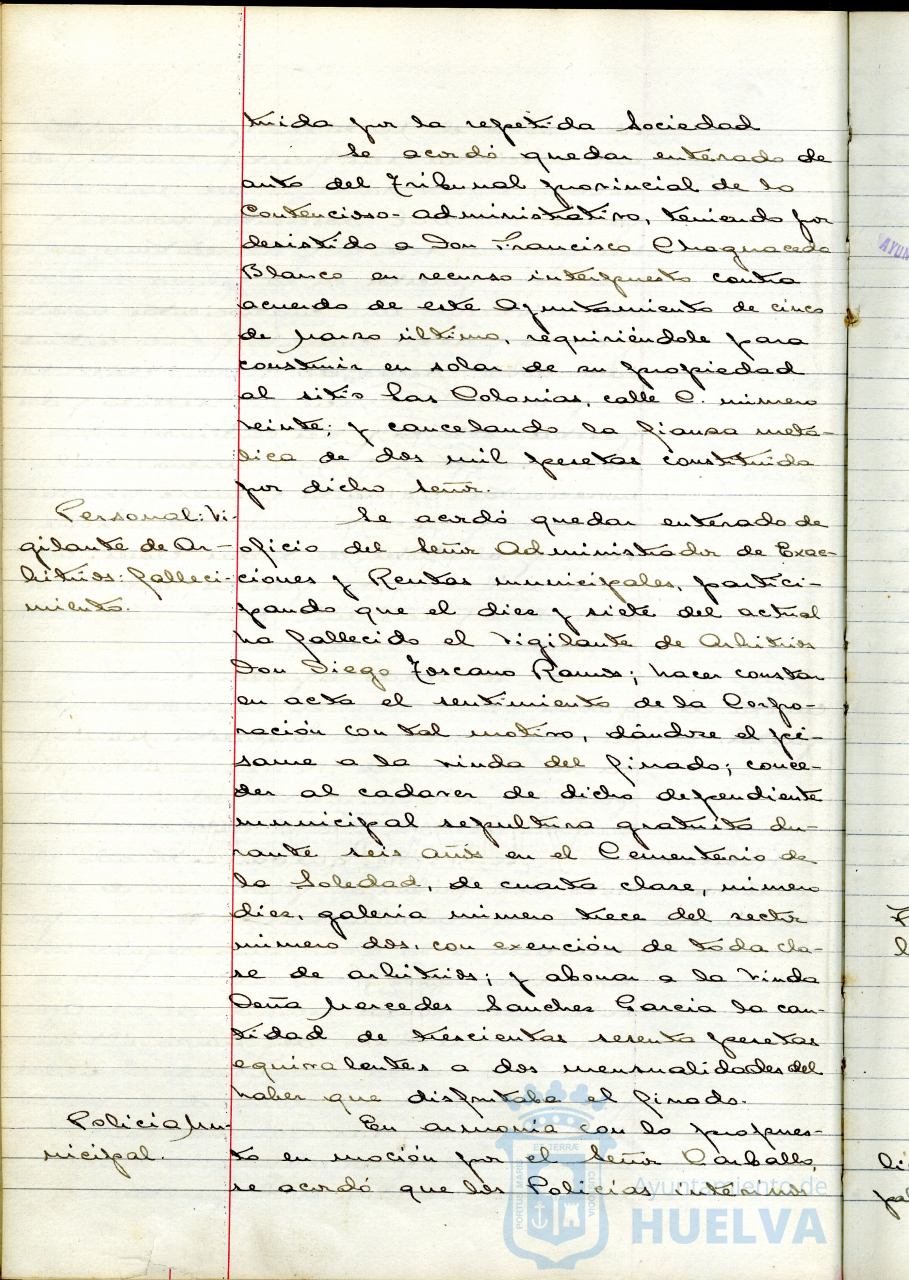 tuida por la repetida Sociedad
Se acordó quedar enterado de
auto del Tribunal provincial de lo
Contencioso-administrativo, teniendo por
desistido a Don Francisco Chaguaceda
Blanco en recurso interpuesto contra
acuerdo de este Ayuntamiento de cinco
de Marzo último, requiriéndole para
construir en solar de su propiedad
al sitio Las Colonias, calle C. número
veinte; y cancelando la fianza metá-
lica de dos mil pesetas constituida
por dicho Señor.
Personal: Vi-
gilante de Ar-
bitrios: falleci-
miento.
Se acordó quedar enterado de
oficio del Señor Administrador de Exac-
ciones y Rentas municipales, partici-
pando que el diez y siete del actual
ha fallecido el Vigilante de Arbitrios
Don Diego Toscano Ramos; hacer constar
en acta el sentimiento de la Corpo-
ración con tal motivo, dándose el pé-
same a la viuda del finado; conce-
der al cadaver de dicho dependiente
municipal sepultura gratuita du-
rante seis años en el Cementerio de
la Soledad, de cuarta clase, número
diez, galería número trece del sector
número dos, con exención de toda cla-
se de arbitrios; y abonar a la viuda
Doña Mercedes Sanchez Garcia la can-
tidad de trescientas sesenta pesetas
equivalentes a dos mensualidades del
haber que disfrutaba el finado.
Policía Mu-
nicipal.
En armonía con lo propues-
to en moción por el Señor Carballo,
se acordó que los Policías interinos
PORTUS MARIS
ET TERRÆ
CUSTODIA
Ayuntamiento de
HUELVA
AYUN